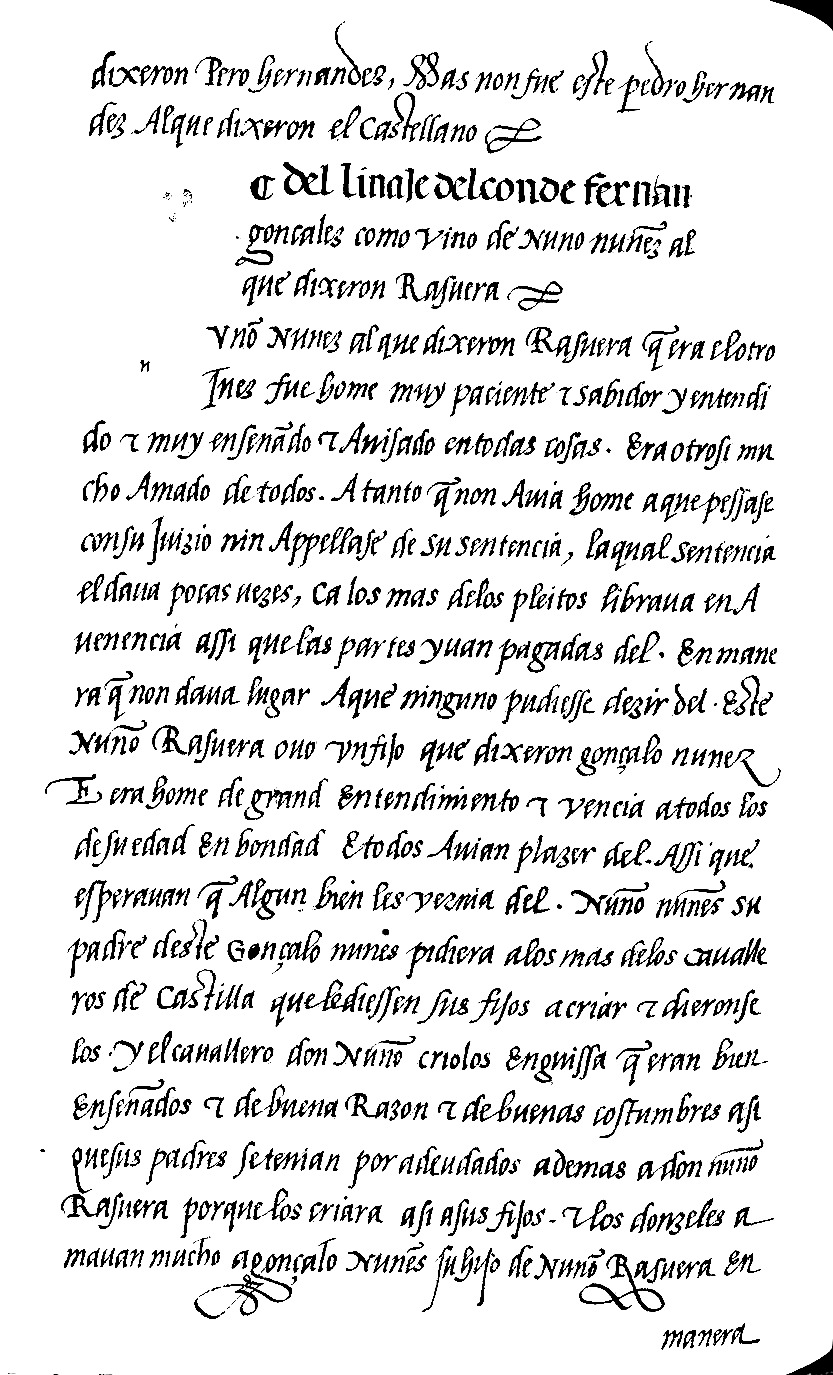 dixeron Pero hernandez, Mas non fue este pedro hernan
dez Al que dixeron el Castellano
¶ del linaje del conde fernan
gonçalez como vino de Nuno nuñez al
que dixeron Rasuera
vño Nunez al que dixeron Rasuera q̃ era el otro
n
Juez fue home muy paciente τ sabidor y entendi
do τ muy enseñado τ Auisado en todas cosas. Era otrosi mu
cho Amado de todos. A tanto q̃ non Auia home a que pessase
con su Juizio nin Appellase de su sentencia, la qual sentencia
el daua pocas uezes, Ca los mas delos pleitos libraua en A
uenencia assi que las partes yuan pagadas del. En mane
ra q̃ non daua lugar A que ninguno pudiesse dezir del. Este
Nuño Rasuera ouo vn fijo que dixeron gonçalo nunez
E era home de grand Entendimiento τ vencia a todos los
de su edad En bondad E todos Auian plazer del. Assi que
esperauan q̃ Algun bien les vernia del. Nuño nuñes su
padre deste Gonçalo nunes pidiera alos mas delos caualle
ros de Castilla que le diessen sus fijos a criar τ dieronse
los. Y el cauallero don Nuño criolos En guissa q̃ eran bien
Enseñados τ de buena Razon τ de buenas costumbres asi
que sus padres se tenian por adeudados ademas a don nuño
Rasuera porque los criara asi a sus fijos. τ los donzeles a
mauan mucho a gonçalo Nuñes su hijo de Nuño Rasuera En
manera